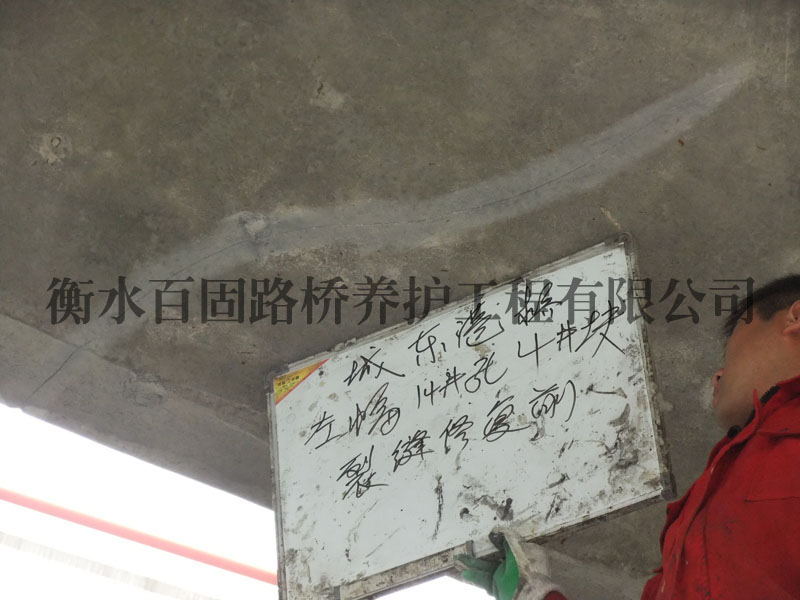 衡水百固路桥养护工程有限公司
城东港桥
左幅14#孔4#块
裂缝修复前